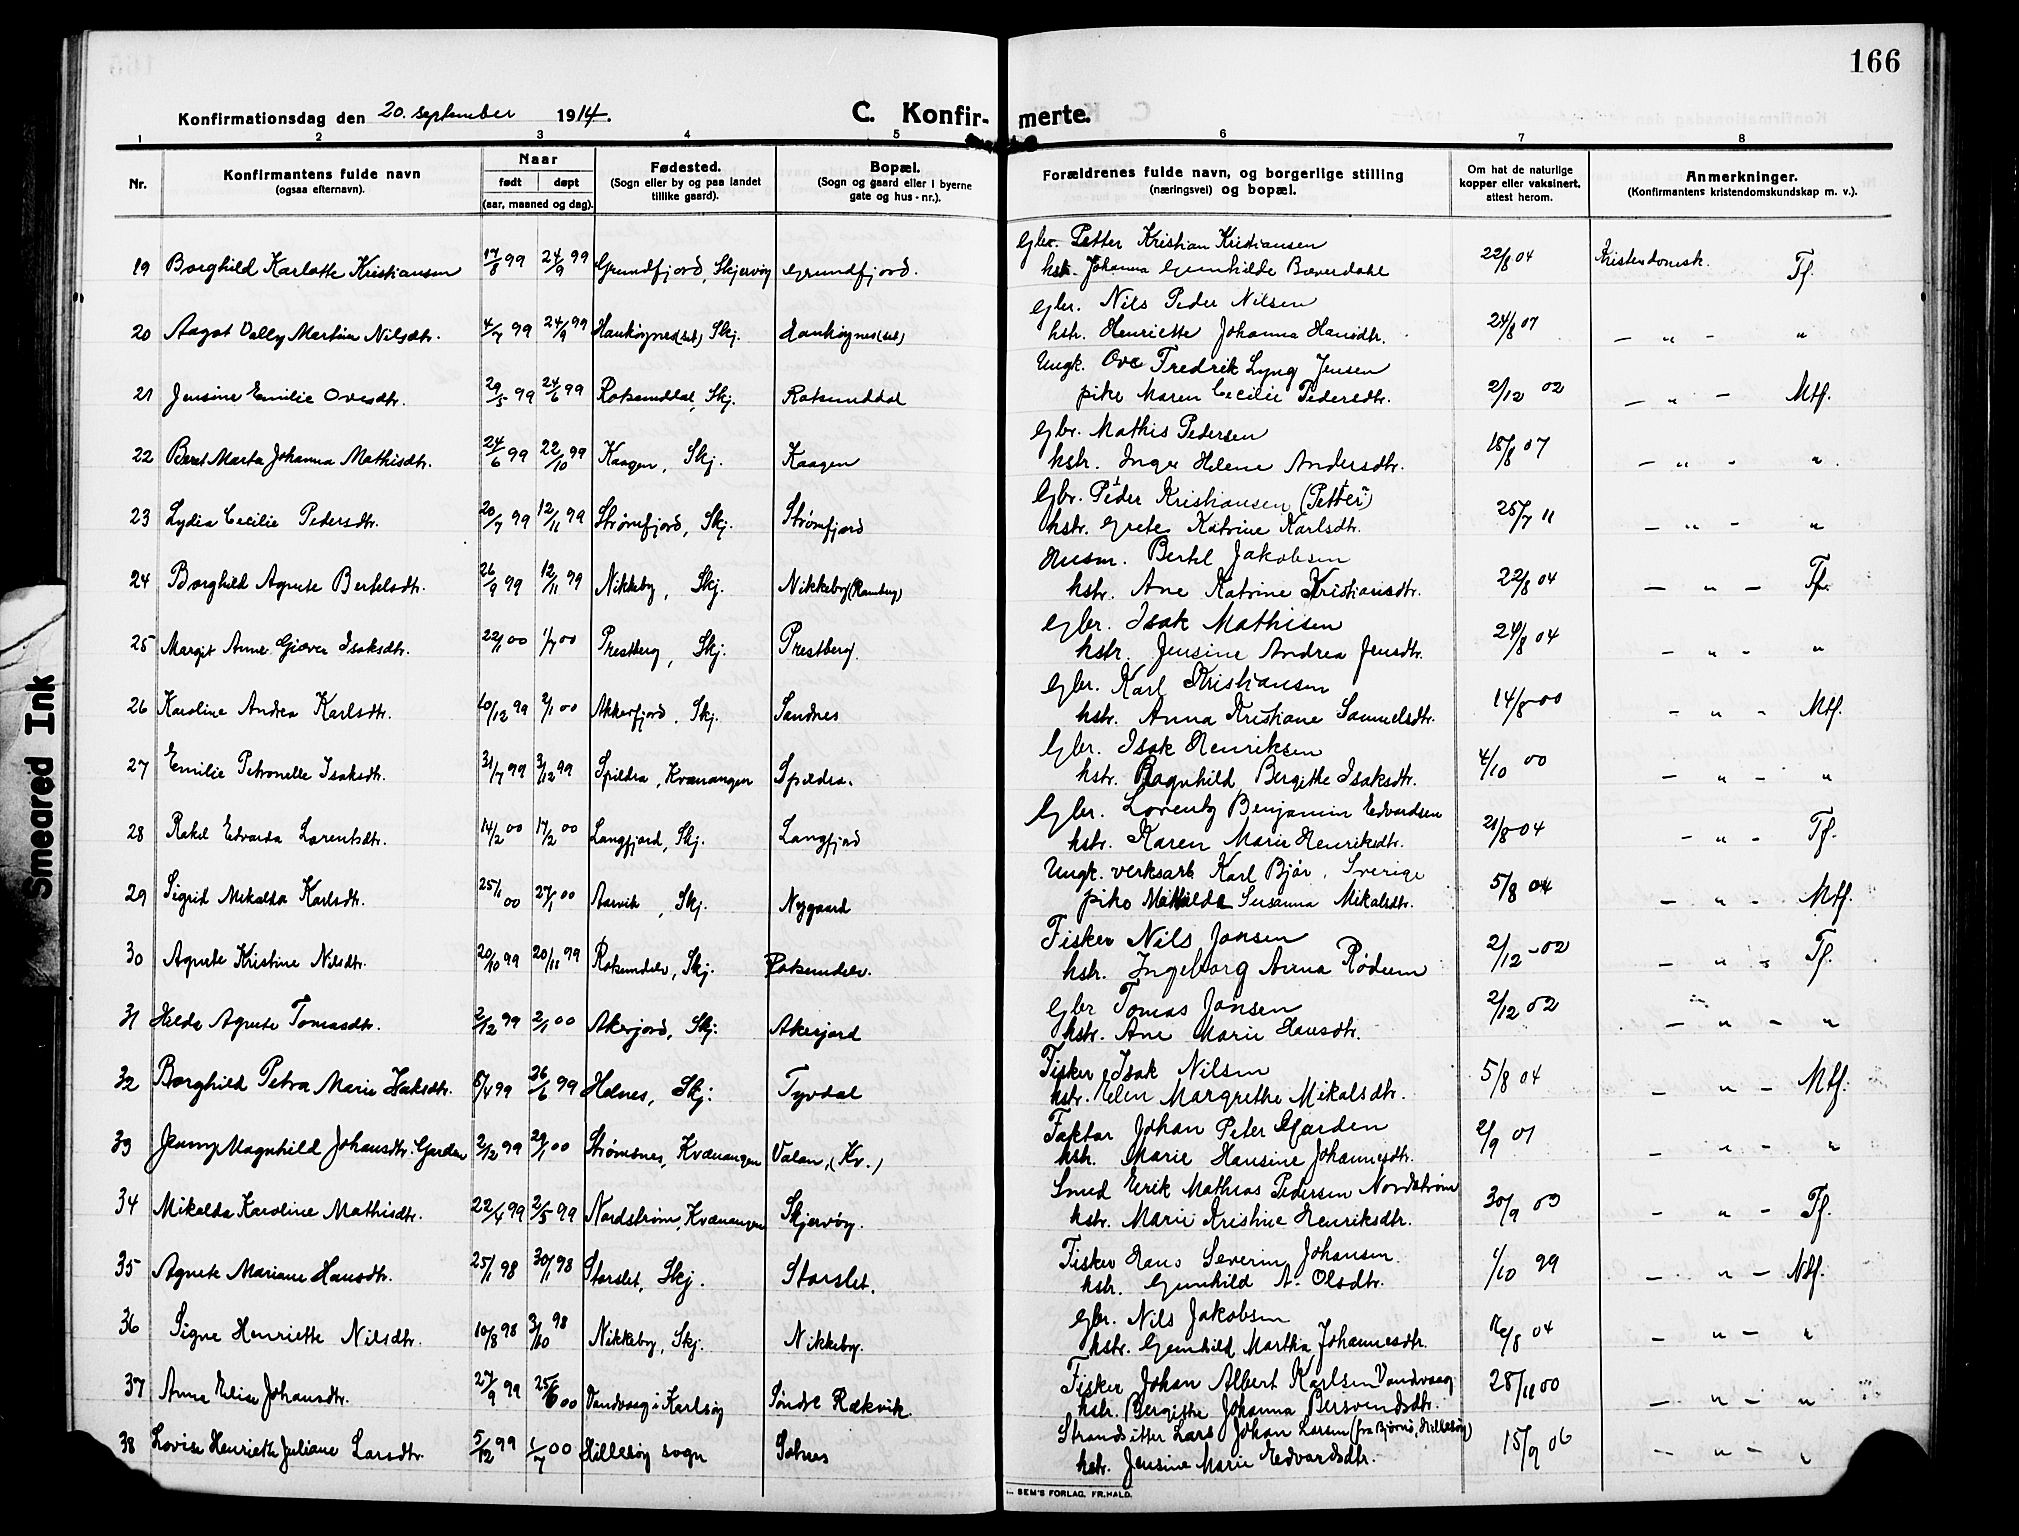 166
Konfirmationsdag den 20. september 1914.
C. Konfirmerte.
1 2 3 4 5 6 7 8
Nr.
Konfirmantens fulde navn
(ogsaa efternavn).
Naar
født døpt
(aar, maaned og dag).
Fødested.
(Sogn eller by og paa landet
tillike gaard).
Bopæl.
(Sogn og gaard eller i byerne
gate og hus-nr.).
Forældrenes fulde navn, og borgerlige stilling
(næringsvei) og bopæl.
Om hat de naturlige
kopper eller vaksinert,
attest herom.
Anmerkninger.
(Konfirmantens kristendomskundskap m. v.).
19 Borghild Karlotte Kristiansen 17/8 99 24/9 99 Grundfjord, Skjervøy Grundfjord. Gbr. Petter Kristian Kristiansen 22/8 04 Kristendomsk. Tf.
hstr. Johanna Gunhilde Bæverdahl
20 Aagot Vally Martine Nilsdtr. 4/7 99 24/9 99 Skj. Gbr. Nils Peder Nilsen 24/8 07 — " — "
hstr. Henriette Johanna Hansdtr.
21 Jensine Emilie Ovesdtr. 29/5 99 24/6 99 Rotsunddal, Skj. Rotsunddal Ungk. Ove Fredrik Lyng Jensen 2/12 02 — " — Mtf.
pike Maren Cecilie Pedersdtr.
22 Beret Marta Johanna Mathisdtr. 24/6 99 22/10 99 Kaagen, Skj. Kaagen Gbr. Mathis Pedersen 18/8 07 — " — "
hstr. Inger Helene Andersdtr.
23 Lydia Cecilie Pedersdtr. 20/7 99 12/11 99 Strømfjord, Skj. Strømfjord Gbr. Peder Kristiansen (Petter) 25/7 11 — " — "
hstr. Grete Katrine Karlsdtr.
24 Borghild Agnete Bertelsdtr. 26/9 99 12/11 99 Nikkeby, Skj. Nikkeby Husm. Bertel Jakobsen 22/8 04 — " — Tf.
hstr. Ane Katrine Kristiansdtr.
25 Margit Anne Giæver Isaksdtr. 22/1 00 1/7 00 Prestberg, Skj. Prestberg. Gbr. Isak Mathisen 24/8 04 — " — "
hstr. Jensine Andrea Jensdtr.
26 Karoline Andrea Karlsdtr. 10/12 99 2/1 00 Akkerfjord, Skj. Sandnes Gbr. Karl Kristiansen 14/8 00 — " — Mtf.
hstr. Anna Kristiane Samuelsdtr.
27 Emilie Petronelle Isaksdtr. 31/7 99 3/12 99 Spildra, Kvænangen Spildra. Gbr. Isak Henriksen 4/10 00 — " — "
hstr. Ragnhild Bergitte Isaksdtr.
28 Rakel Edvarda Lorentsdtr. 14/2 00 17/2 00 Langfjord, Skj. Langfjord Gbr. Lorentz Benjamin Edvardsen 21/8 04 — " — Tf.
hstr. Karen Marie Henriksdtr.
29 Sigrid Mikalda Karlsdtr. 25/1 00 27/1 00 Aarvik, Skj. Nygaard Ungk. verksarb. Karl Bjør, Sverige 5/8 04 — " — Mtf.
pike Mathilde Susanna Mikalsdtr.
30 Agnete Kristine Nilsdtr. 20/10 99 20/11 99 Rotsundelv, Skj. Rotsundelv. Fisker Nils Jonsen 2/12 02 — " — Tf.
hstr. Ingeborg Anna Rødum
31 Helda Agnete Tomasdtr. 2/12 99 2/1 00 Akerjord, Skj. Akerjord Gbr Tomas Jonsen 2/12 02 — " — "
hstr. Ane Marie Hansdtr.
32 Borghild Petra Marie Isaksdtr. 8/4 99 26/6 99 Helnes, Skj. Tyvdal Fisker Isak Nilsen 5/8 04 — " — Mtf.
hstr. Elen Margrethe Mikalsdtr.
33 Jenny Magnhild Johansdtr. Garden 2/12 99 29/1 00 Strømsnes, Kvænangen Valan, (Kv.) Faktor Johan Peter Garden 2/9 01 — " — "
hstr. Marie Hansine Johannesdtr.
34 Mikalda Karoline Mathisdtr. 22/4 99 2/5 99 Nordstrøm, Kvænangen Skjervøy. Smed Erik Mathias Pedersen Nordstrøm 30/9 03 — " — Tf.
hstr. Marie Kristine Henriksdtr.
35 Agnete Mariane Hansdtr. 25/1 98 30/1 98 Storslet, Skj. Storslet. Fisker Hans Severin Johansen 1/10 99 — " — Ntf.
hstr. Gunhild A. Olsdtr.
36 Signe Henriette Nilsdtr. 10/8 98 3/10 98 Nikkeby, Skj. Nikkeby. Gbr. Nils Jakobsen 16/8 04 — " — "
hstr. Gunhild Martha Johannesdtr.
37 Anna Elise Johansdtr. 27/9 99 25/6 00 Vandvaag i Karlsøy Søndre Rækvik. Fisker Johan Albert Karlsen Vandvaag 28/11 00 — " — "
hstr. Bergitte Johanna Bersvendsdtr.
38 Lovise Henriette Juliane Larsdtr. 5/12 99 1/7 00 Hillesøy sogn Sotnes Strandsitter Lars Johan Larsen (fra Bjørnø, Hillesøy) 15/9 06 — " — "
hstr. Jensine Marie Edvardsdtr.
SEM'S FORLAG, FR.HALD.
Smeared Ink